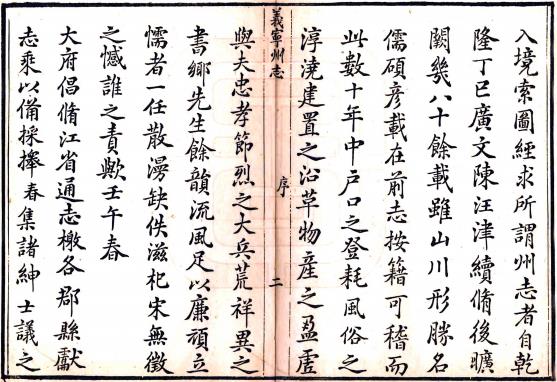 入境索圖經求所謂州志者自乾
隆丁巳廣文陳汪津續脩後曠
闕幾八十餘載雖山川形勝名
儒碩彥載在前志按籍可稽而
此數十年中戸口之登耗風俗之
淳澆建置之沿革物産之盈虛
義寧州志
序
二
與夫忠孝節烈之大兵荒祥異之
書鄉先生餘韻流風足以廉頑立
懦者一任散漫缺佚滋杞宋無徵
之憾誰之責歟壬午春
大府倡脩江省通志檄各郡縣獻
志乘以備採擇春集諸紳士議之